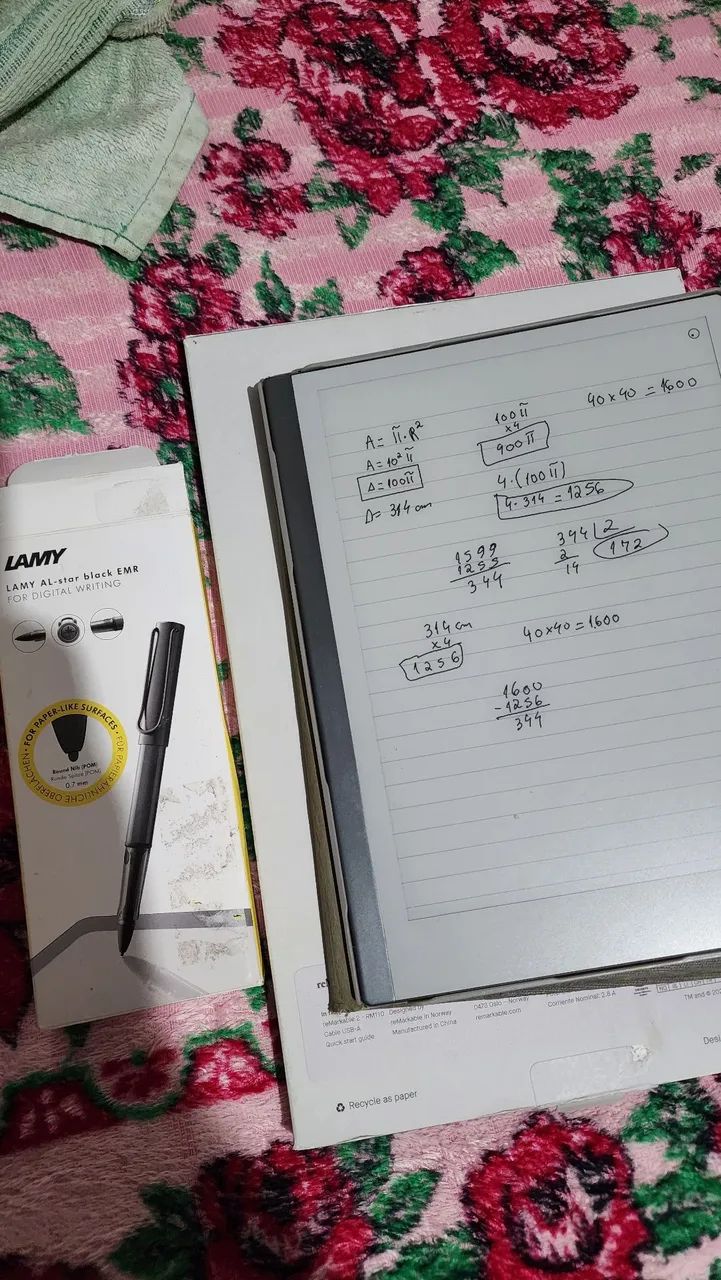 LAMY
LAMY AL-star black EMR
FOR DIGITAL WRITING
FOR PAPER-LIKE SURFACES · FÜR PAPIERÄHNLICHE OBERFLÄCHEN ·
Round Nib (POM)
Runde Spitze (POM)
0.7 mm
A = π·R²
A = 10²π
A = 100π
A = 314 cm
100π
x4
900π
40×40 = 1600
4·(100π)
4·314 = 1256
1599
1255
344
344 2
2 172
14
314 cm
x4
1256
40×40 = 1600
1600
-1256
344
reMarkable 2 - RM110
Cable USB-A
Quick start guide
Designed by
reMarkable in Norway
Manufactured in China
0473 Oslo - Norway
remarkable.com
Corriente Nominal: 2.8 A
TM and ©
Recycle as paper